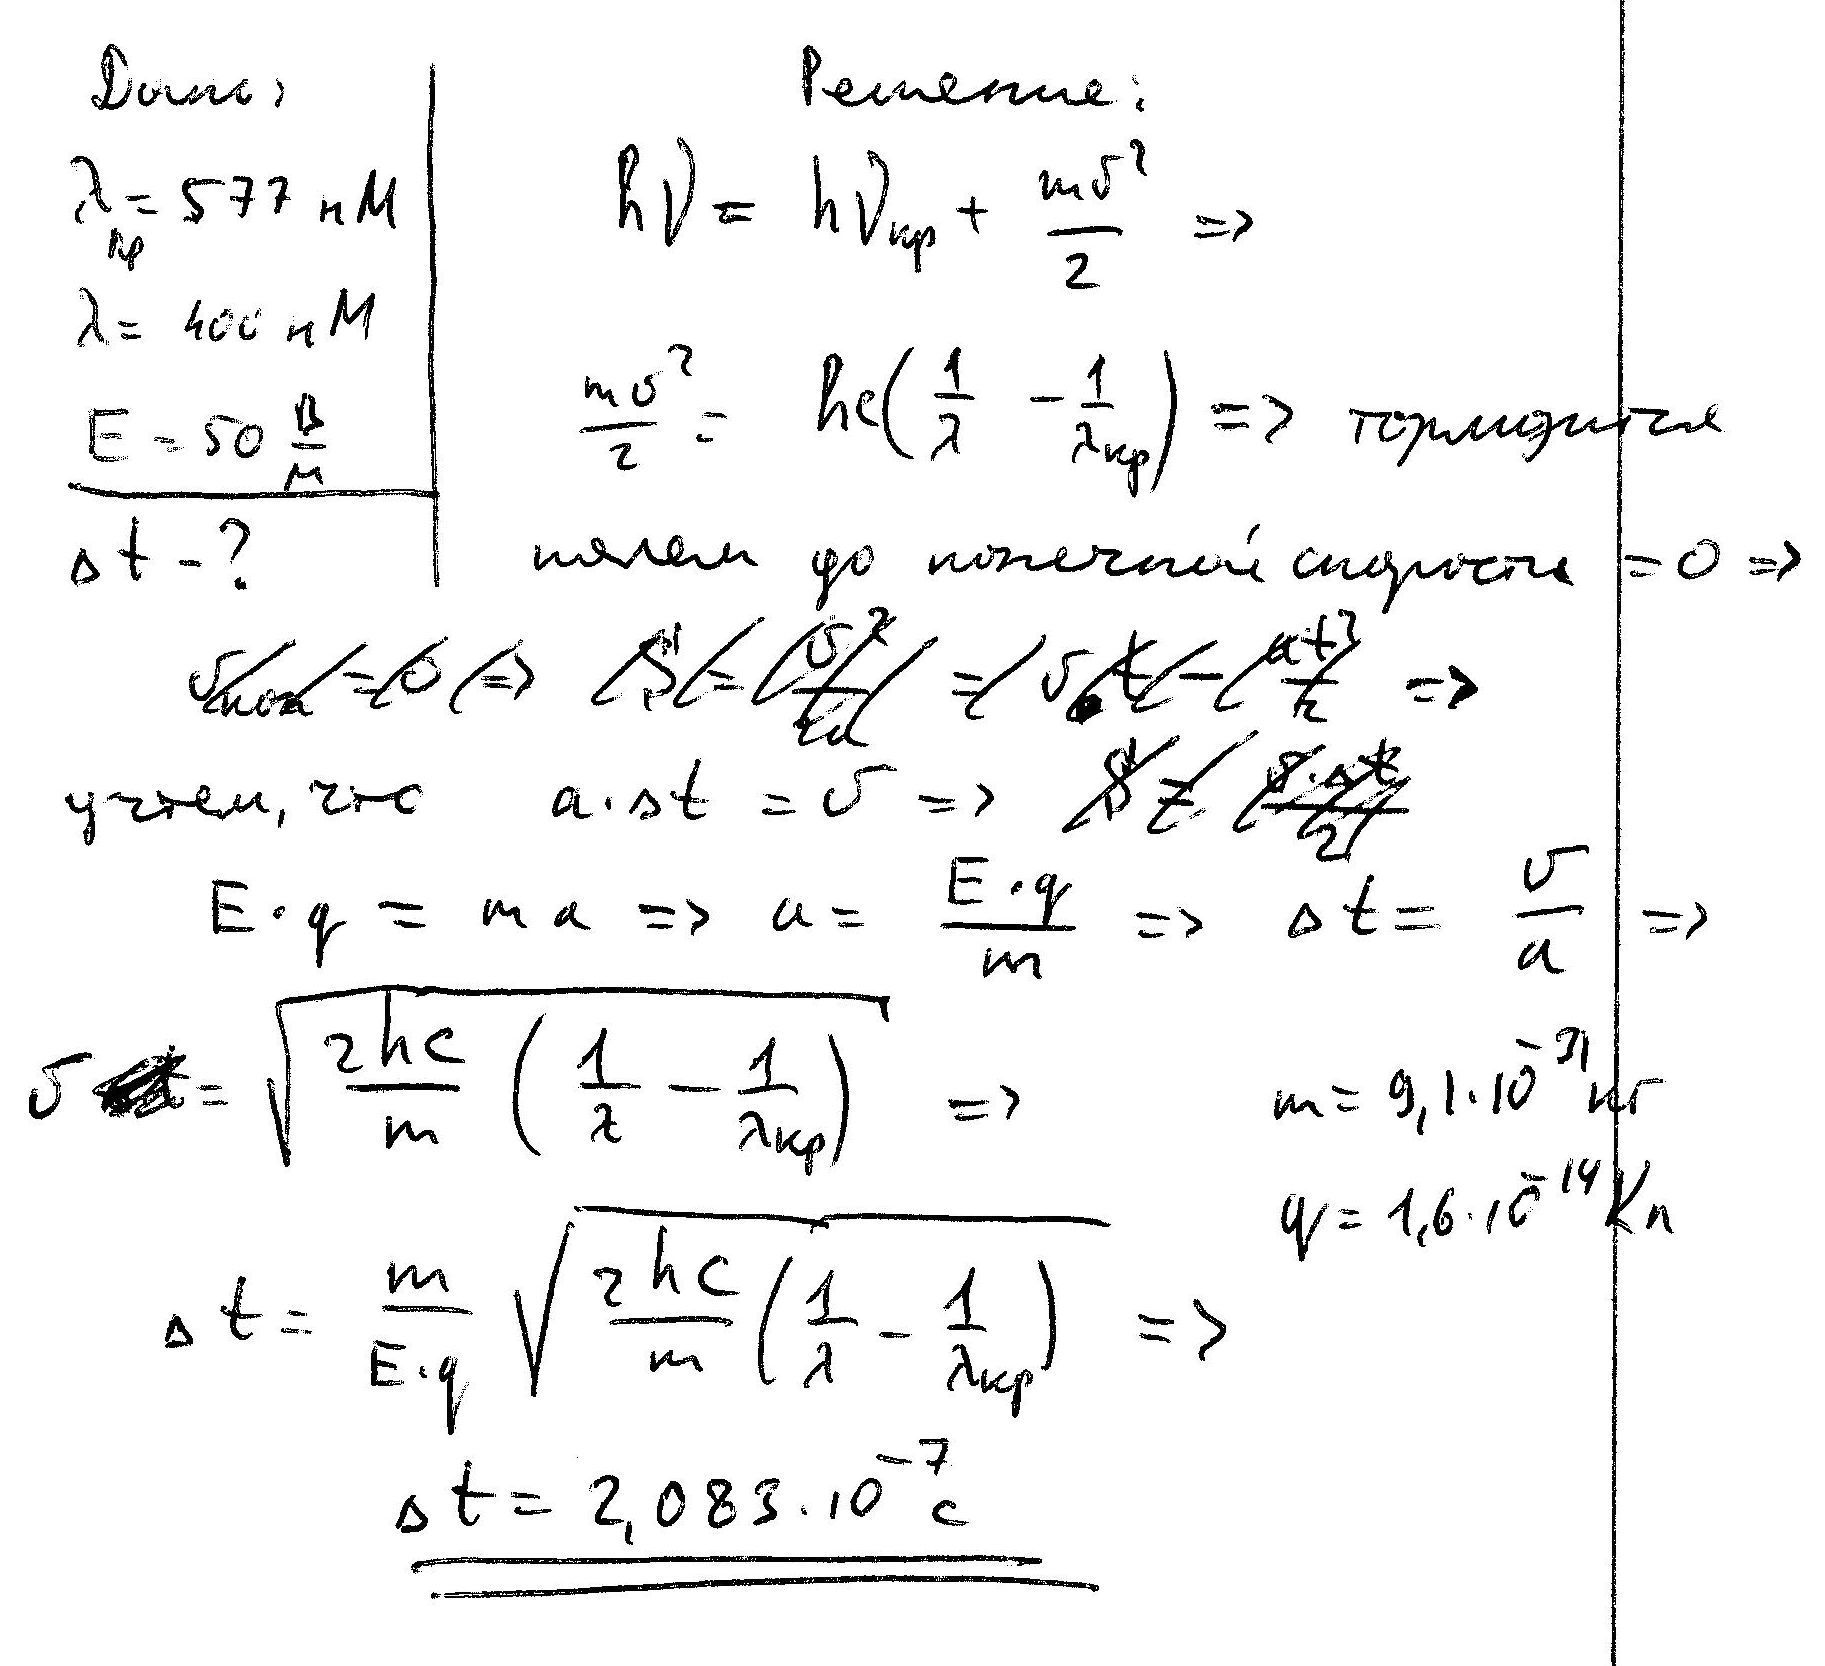 Дано:
λкр = 577 нм
λ = 400 нм
E = 50 В/м
Δt - ?
Решение:
hν = hνкр + mυ²/2 =>
mυ²/2 = hc(1/λ - 1/λкр) => тормозится
полем до конечной скорости = 0 =>
υкон = 0 => S = υ²/2a = υ₀t - at²/2 =>
учтем, что a·Δt = υ => S = υ·Δt/2
E·q = ma => a = E·q/m => Δt = υ/a =>
υ = √(2hc/m (1/λ - 1/λкр)) =>
m = 9,1·10⁻³¹ кг
q = 1,6·10⁻¹⁹ Кл
Δt = m/E·q √(2hc/m (1/λ - 1/λкр)) =>
Δt = 2,083·10⁻⁷ c